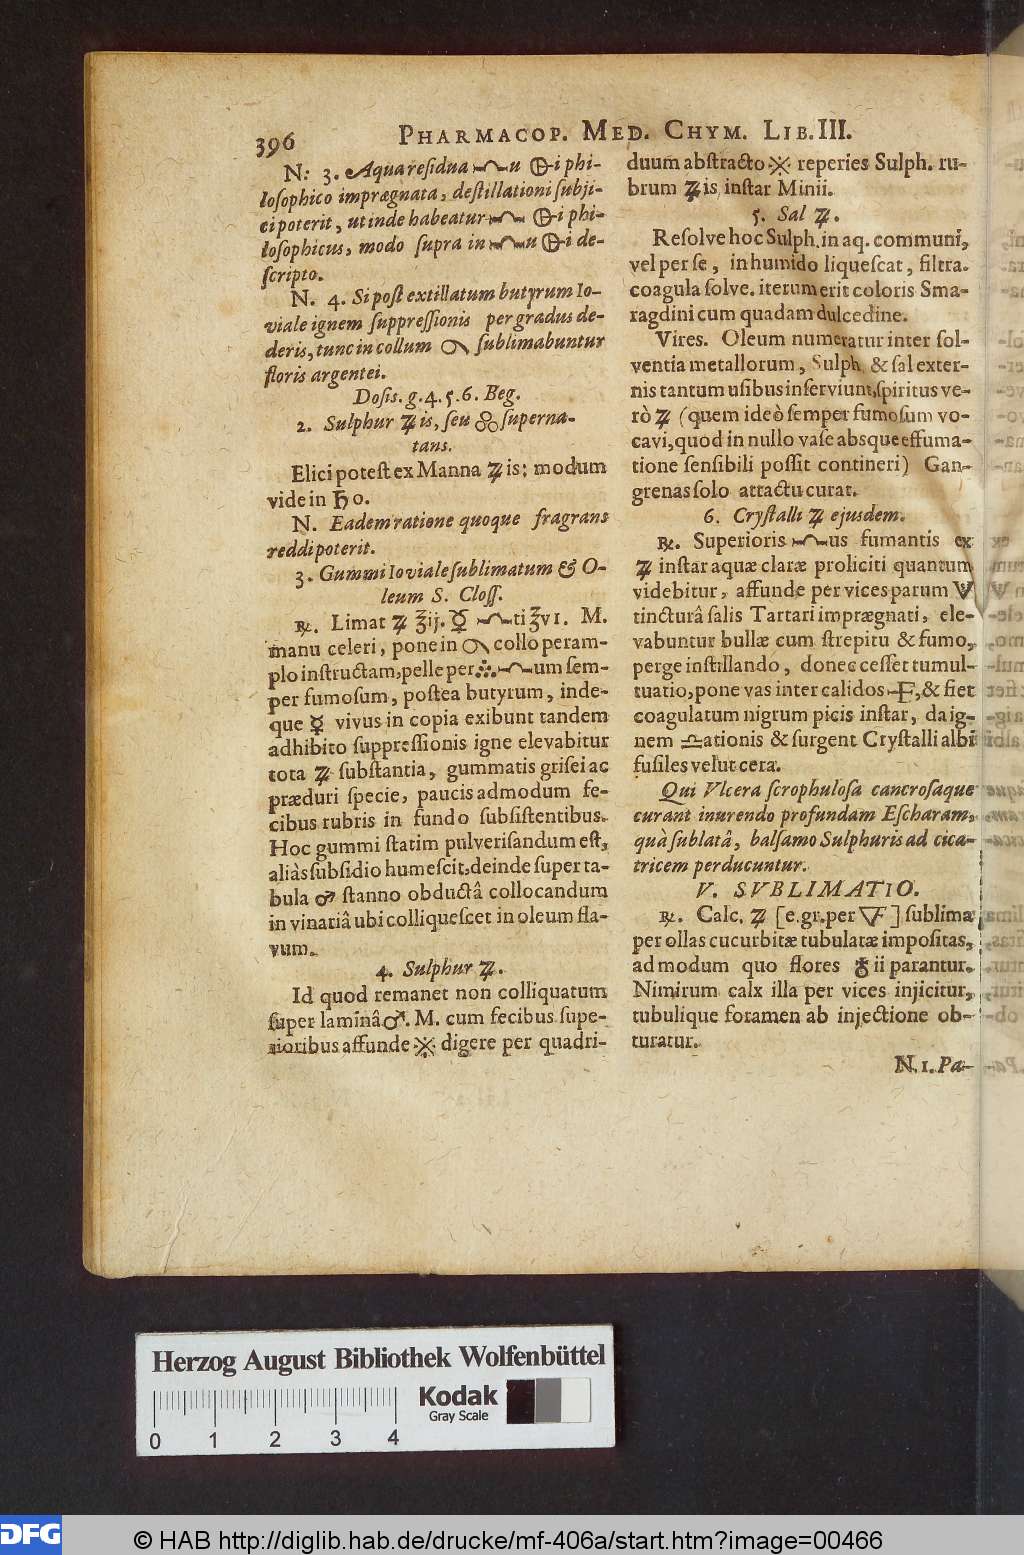 396 PHARMACOP. MED. CHYM. LIB. III.
N. 3. Aqua residua u i phi-
losophico imprægnata, destillationi subji-
ci poterit, ut inde habeatur i phi-
losophicus, modo supra in u i de-
scripto.
N. 4. Si post extillatum butyrum Io-
viale ignem suppressionis per gradus de-
deris, tunc in collum sublimabuntur
floris argentei.
Dosis. g. 4. 5. 6. Beg.
2. Sulphur ♃is, seu superna-
tans.
Elici potest ex Manna ♃is: modum
vide in ♄o.
N. Eadem ratione quoque fragrans
reddi poterit.
3. Gummi Ioviale sublimatum & O-
leum S. Closs.
℞. Limat ♃ ʒij. ☿ ti ʒvi. M.
manu celeri, pone in collo peram-
plo instructam, pelle per um sem-
per fumosum, postea butyrum, inde-
que ☿ vivus in copia exibunt tandem
adhibito suppressionis igne elevabitur
tota ♃ substantia, gummatis grisei ac
præduri specie, paucis admodum fe-
cibus rubris in fundo subsistentibus.
Hoc gummi statim pulverisandum est,
aliàs subsidio humescit, deinde super ta-
bula ♂ stanno obductâ collocandum
in vinariâ ubi colliquescet in oleum fla-
vum.
4. Sulphur ♃.
Id quod remanet non colliquatum
super laminâ ♂. M. cum fecibus supe-
rioribus affunde digere per quadri-
duum abstracto reperies Sulph. ru-
brum ♃is, instar Minii.
5. Sal ♃.
Resolve hoc Sulph. in aq. communi,
vel per se, in humido liquescat, filtra.
coagula solve. iterum erit coloris Sma-
ragdini cum quadam dulcedine.
Vires. Oleum numeratur inter sol-
ventia metallorum, Sulph. & sal exter-
nis tantum usibus inserviunt, spiritus ve-
rò ♃ (quem ideò semper fumosum vo-
cavi, quod in nullo vase absque effuma-
tione sensibili possit contineri) Gan-
grenas solo attactu curat.
6. Crystalli ♃ ejusdem.
℞. Superioris us fumantis ex
♃ instar aquæ claræ proliciti quantum
videbitur, affunde per vices parum
tincturâ salis Tartari imprægnati, ele-
vabuntur bullæ cum strepitu & fumo,
perge instillando, donec cesset tumul-
tuatio, pone vas inter calidos , & fiet
coagulatum nigrum picis instar, da ig-
nem ♎ationis & surgent Crystalli albi
fusiles velut cera.
Qui Vlcera scrophulosa cancrosaque
curant inurendo profundam Escharam,
quà sublatâ, balsamo Sulphuris ad cica-
tricem perducuntur.
V. SVBLIMATIO.
℞. Calc. ♃ [e. gr. per ] sublima
per ollas cucurbitæ tubulatæ impositas,
ad modum quo flores ♁ii parantur.
Nimirum calx illa per vices injicitur,
tubulique foramen ab injectione ob-
turatur.
N. 1. Pa-
Herzog August Bibliothek Wolfenbüttel
Kodak
Gray Scale
0 1 2 3 4
DFG
© HAB http://diglib.hab.de/drucke/mf-406a/start.htm?image=00466